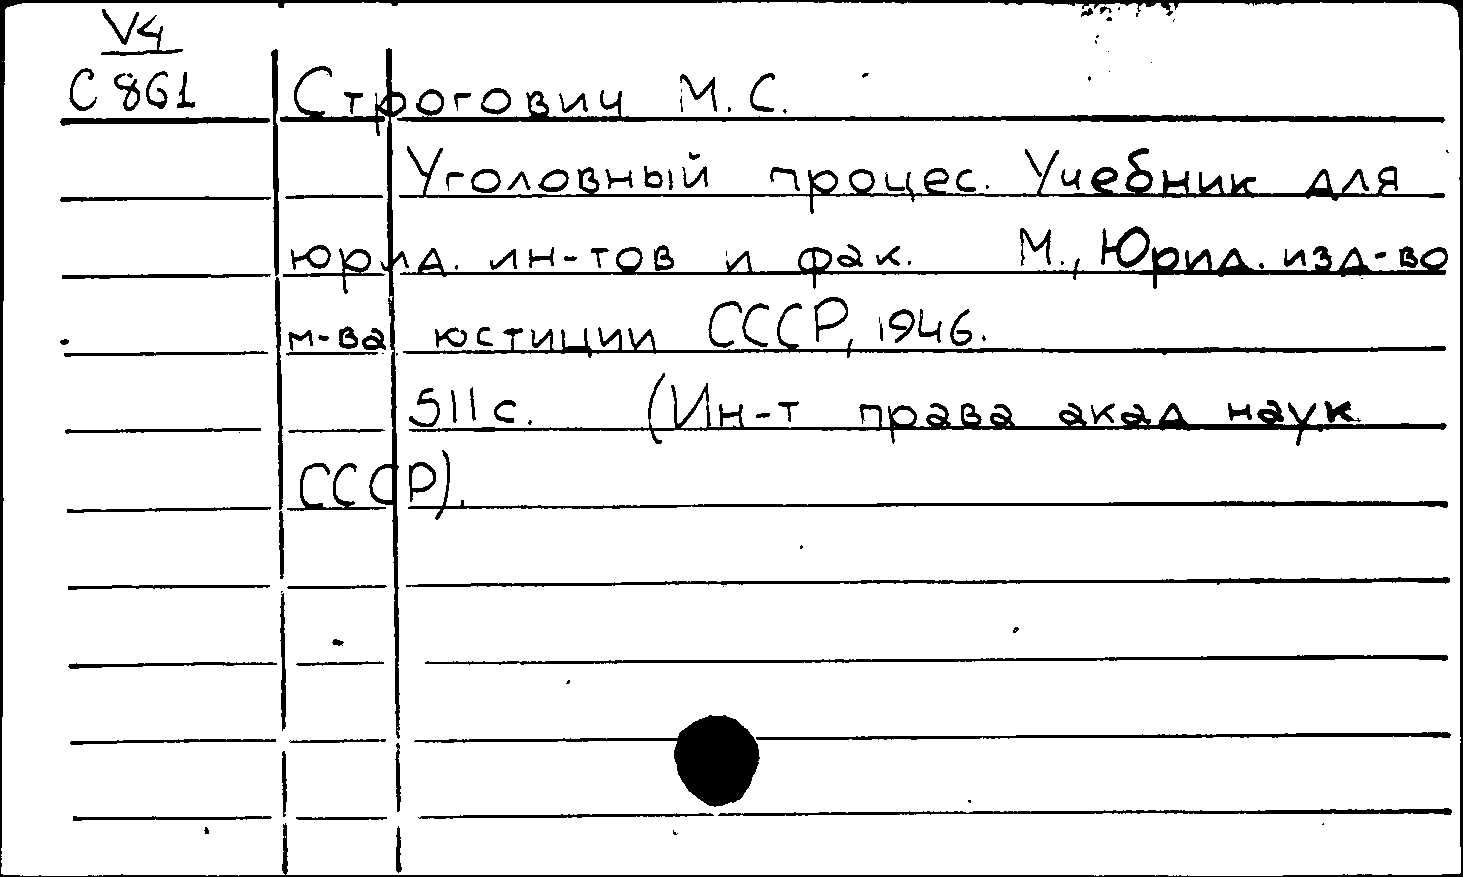 V4
С 861
Строгович М. С.
Уголовный процес. Учебник для
юрид. ин-тов и фак. М., Юрид. изд-во
м-ва юстиции СССР, 1946.
511 с. (Ин-т права акад наук
СССР).